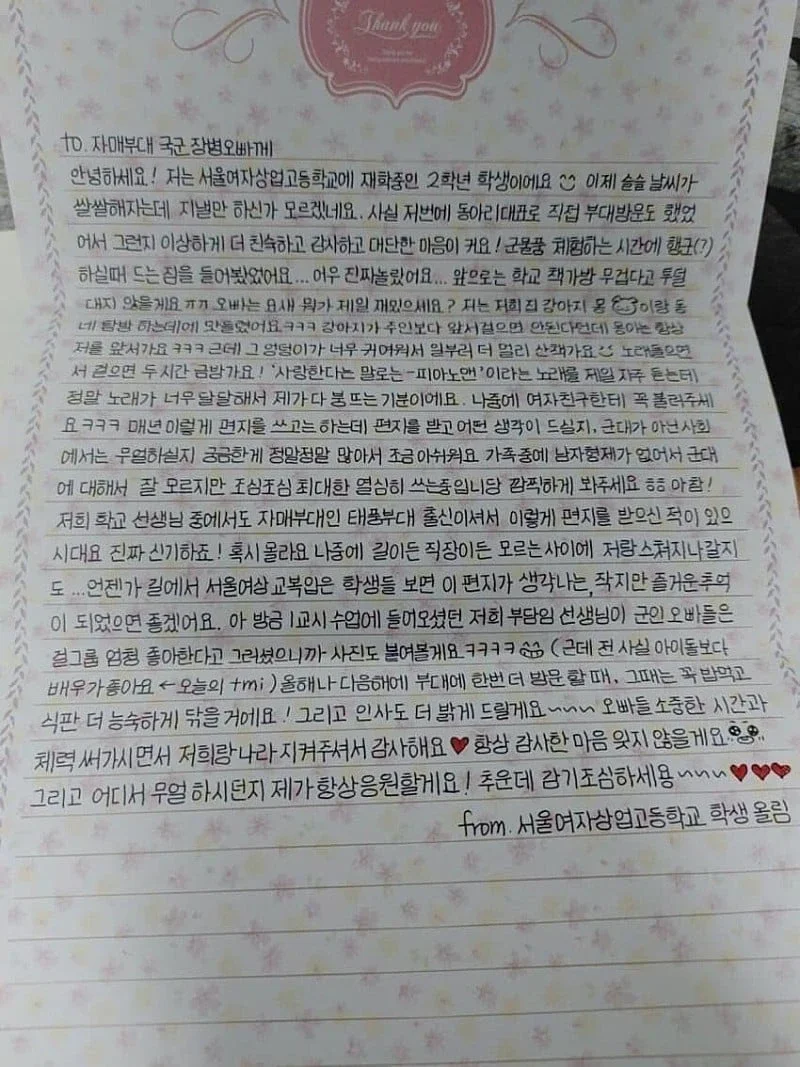 Thank you
to. 자매부대 국군 장병오빠께
안녕하세요! 저는 서울여자상업고등학교에 재학중인 2학년 학생이에요 이제 슬슬 날씨가
쌀쌀해지는데 지낼만 하신가 모르겠네요. 사실 저번에 동아리대표로 직접 부대방문도 했었
어서 그런지 이상하게 더 친숙하고 감사하고 대단한 마음이 커요! 군물품 체험하는 시간에 행군(?)
하실때 드는 짐을 들어봤었어요... 어우 진짜놀랐어요... 앞으로는 학교 책가방 무겁다고 투덜
대지 않을게요ㅠㅠ 오빠는 요새 뭐가 제일 재밌으세요? 저는 저희집 강아지 몽이랑 동
네 탐방 하는데에 맛들렸어요ㅋㅋㅋ 강아지가 주인보다 앞서걸으면 안된다던데 몽이는 항상
저를 앞서가요 ㅋㅋㅋ 근데 그 엉덩이가 너무 귀여워서 일부러 더 멀리 산책가요 노래들으면
서 걸으면 두시간 금방가요! '사랑한다는 말로는-피아노맨'이라는 노래를 제일 자주 듣는데
정말 노래가 너무 달달해서 제가 다 붕 뜨는 기분이에요. 나중에 여자친구한테 꼭 불러주세
요ㅋㅋㅋ 매년 이렇게 편지를 쓰고는 하는데 편지를 받고 어떤 생각이 드실지, 군대가 아닌 사회
에서는 무얼하실지 궁금한게 정말정말 많아서 조금 아쉬워요 가족중에 남자형제가 없어서 군대
에 대해서 잘 모르지만 조심조심 최대한 열심히 쓰는중입니당 깜찍하게 봐주세요 ㅎㅎ 아참!
저희 학교 선생님 중에서도 자매부대인 태풍부대 출신이셔서 이렇게 편지를 받으신 적이 있으
시대요 진짜 신기하죠! 혹시 몰라요 나중에 길이든 직장이든 모르는사이에 저랑 스쳐지나갈지
도 ...언젠가 길에서 서울여상 교복입은 학생들 보면 이 편지가 생각나는, 작지만 즐거운추억
이 되었으면 좋겠어요. 아 방금 1교시 수업에 들어오셨던 저희 부담임 선생님이 군인 오빠들은
걸그룹 엄청 좋아한다고 그러셨으니까 사진도 붙여볼게요ㅋㅋㅋㅋ (근데 전 사실 아이돌보다
배우가좋아요 ← 오늘의 tmi) 올해나 다음해에 부대에 한번 더 방문 할 때, 그때는 꼭 밥먹고
식판 더 능숙하게 닦을 거에요! 그리고 인사도 더 밝게 드릴게요~~~ 오빠들 소중한 시간과
체력 써가시면서 저희랑 나라 지켜주셔서 감사해요♥ 항상 감사한 마음 잊지 않을게요
그리고 어디서 무얼 하시던지 제가 항상응원할게요! 추운데 감기조심하세용~~~♥♥♥
from. 서울여자상업고등학교 학생 올림